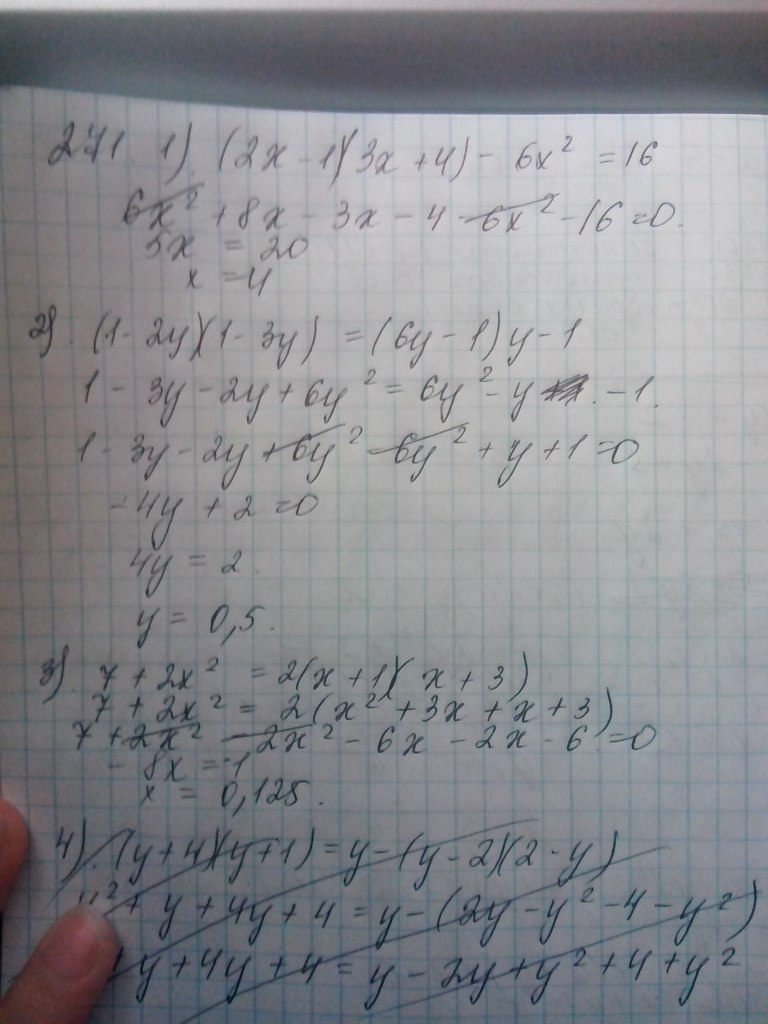 271 1). (2x - 1)(3x + 4) - 6x² = 16
6x² + 8x - 3x - 4 - 6x² - 16 = 0.
5x = 20
x = 4
2). (1 - 2y)(1 - 3y) = (6y - 1)y - 1
1 - 3y - 2y + 6y² = 6y² - y - 1.
1 - 3y - 2y + 6y² - 6y² + y + 1 = 0
- 4y + 2 = 0
4y = 2
y = 0,5.
3). 7 + 2x² = 2(x + 1)(x + 3)
7 + 2x² = 2(x² + 3x + x + 3)
7 + 2x² - 2x² - 6x - 2x - 6 = 0
- 8x = -1
x = 0,125.
4). (y + 4)(y + 1) = y - (y - 2)(2 - y)
y² + y + 4y + 4 = y - (2y - y² - 4 - y²)
+ y + 4y + 4 = y - 2y + y² + 4 + y²